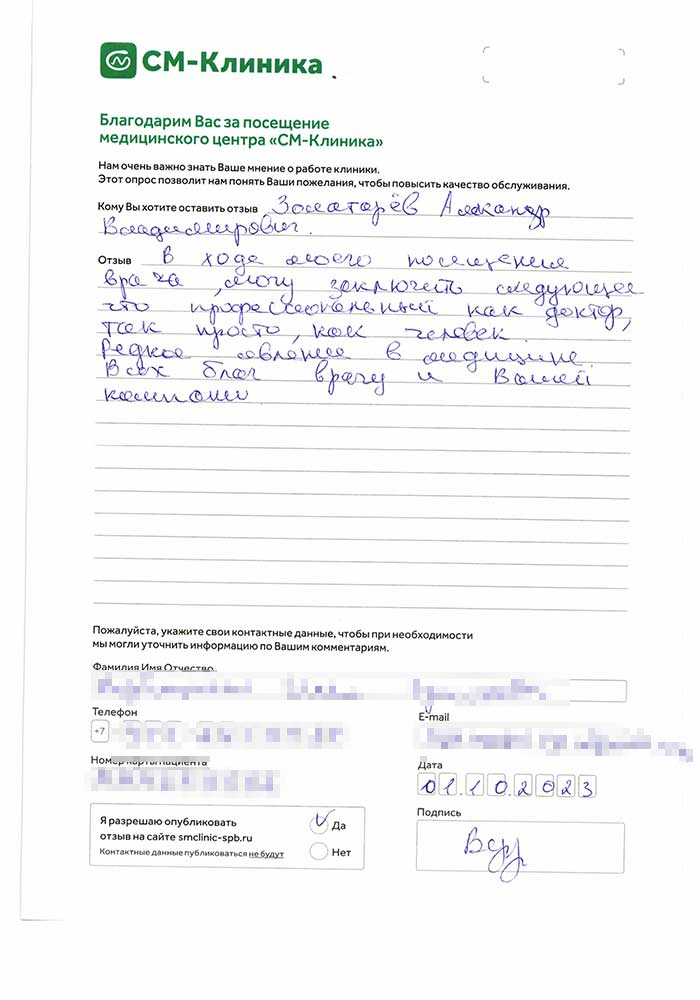 СМ-Клиника
Благодарим Вас за посещение
медицинского центра «СМ-Клиника»
Нам очень важно знать Ваше мнение о работе клиники.
Этот опрос позволит нам понять Ваши пожелания, чтобы повысить качество обслуживания.
Кому Вы хотите оставить отзыв Золотарёв Александр
Владимирович.
Отзыв В ходе моего посещения
врача, могу заключить следующее
что профессиональный как доктор,
так просто, как человек.
Редкое явление в медицине.
Всех благ врачу и Вашей
компании
Пожалуйста, укажите свои контактные данные, чтобы при необходимости
мы могли уточнить информацию по Вашим комментариям.
Фамилия Имя Отчество
Телефон
E-mail
+7
Номер карты пациента
Дата
01.10.2023
Я разрешаю опубликовать
отзыв на сайте smclinic-spb.ru
Контактные данные публиковаться не будут
Да
Нет
Подпись